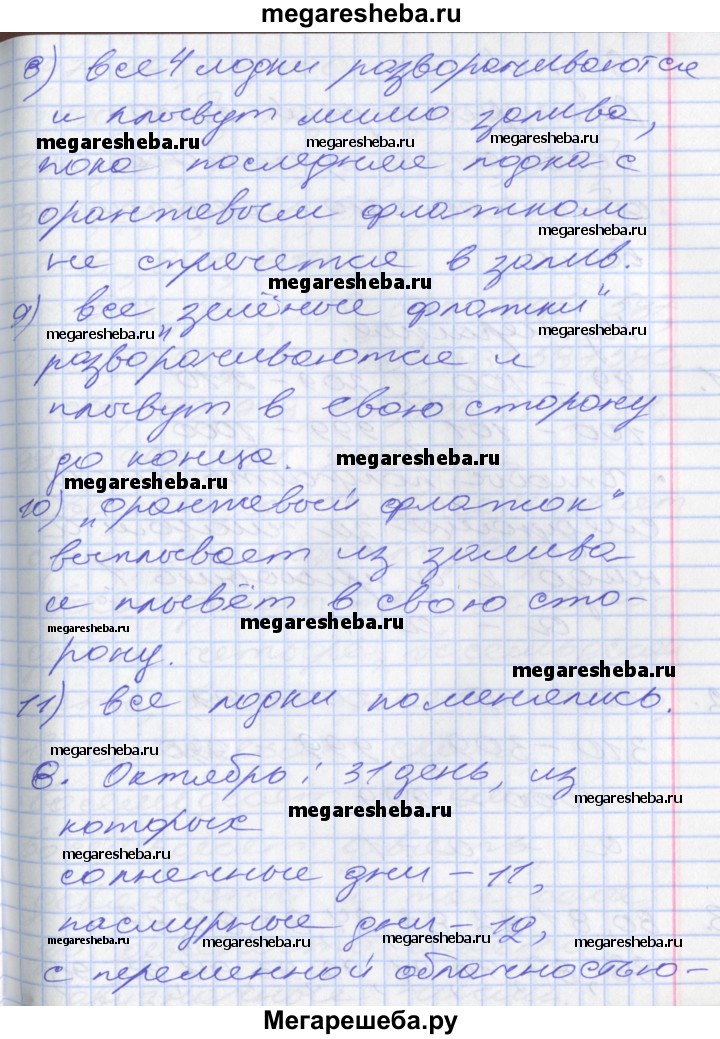 megaresheba.ru
8) все 4 лодки разворачиваются
и плывут мимо залива,
megaresheba.ru megaresheba.ru megaresheba.ru
пока последняя лодка с
оранжевым флажком
megaresheba.ru
не спрячется в залив.
megaresheba.ru
9) все „зелёные флажки“
megaresheba.ru megaresheba.ru
разворачиваются и
плывут в свою сторону
до конца. megaresheba.ru
megaresheba.ru
10) „оранжевый флажок“
выплывает из залива
megaresheba.ru
и плывёт в свою сто-
megaresheba.ru megaresheba.ru
рону.
megaresheba.ru
11) все лодки поменялись.
megaresheba.ru
8. Октябрь: 31 день, из
megaresheba.ru megaresheba.ru
которых
megaresheba.ru
солнечные дни – 11,
пасмурные дни – 12,
megaresheba.ru megaresheba.ru megaresheba.ru megaresheba.ru
с переменной облачностью –
Мегарешеба.ру